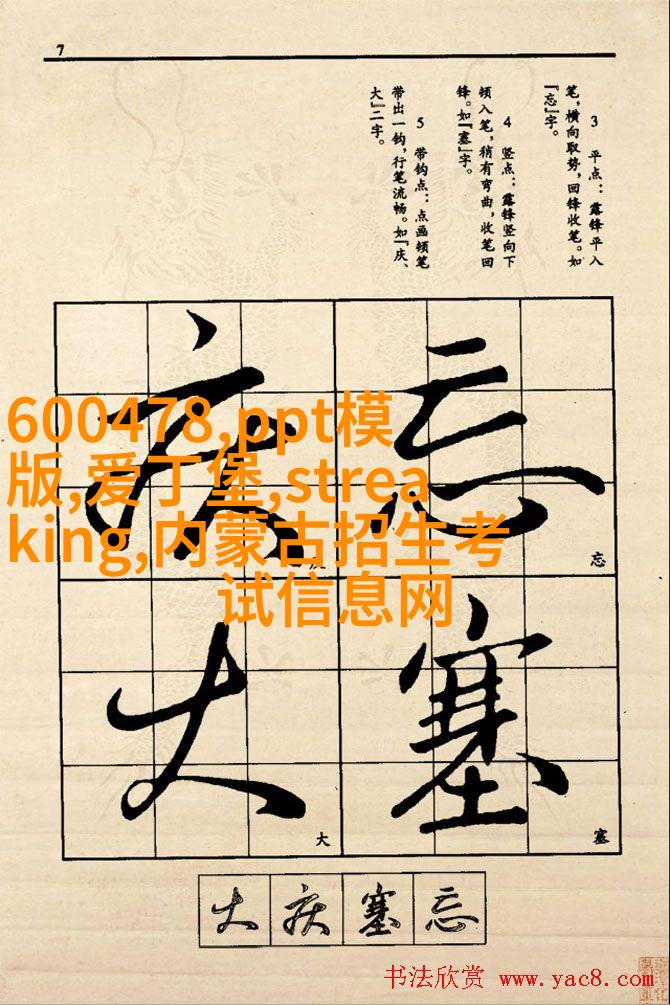 7
3 平点：露锋平入
笔，横向取势，回锋收笔。如
『忘』字。
4 竖点：露锋竖向下
顿入笔，稍有弯曲，收笔回
锋。如『塞』字。
5 带钩点：点画顿笔
带出一钩，行笔流畅。如『庆、
大』二字。
600478,ppt模
版,爱丁堡,strea
king,内蒙古招生考
试信息网
忘
庆
忘
庆
塞
大
塞
大
大庆塞忘
书法欣赏 www.yac8.com